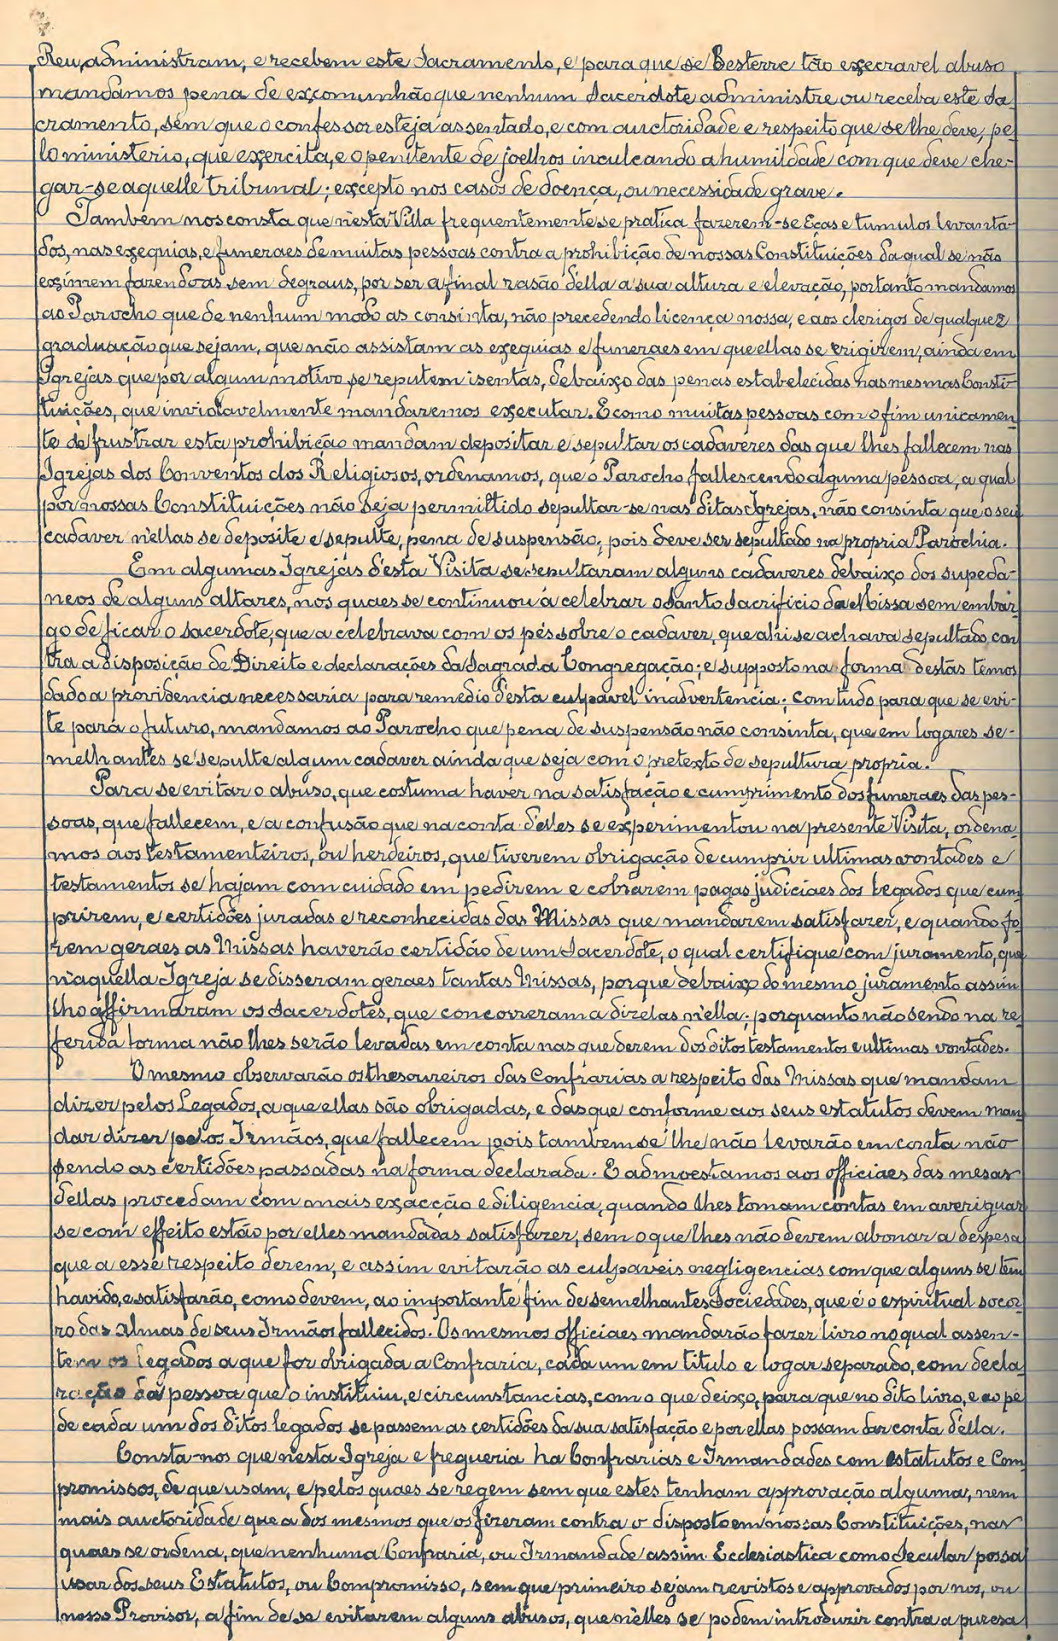 Reu, administram, e recebem este Sacramento, e para que se Desterre tão execravel abuso
mandâmos pena de excomunhão que nenhum Sacerdote administre ou receba este Sa-
cramento, sem que o confessor esteja assentado, e com auctoridade e respeito que se lhe deve, pe-
lo ministerio, que exercita, e o penitente de joelhos inculcando a humildade com que deve che-
gar-se aquelle tribunal; excepto nos casos de doença, ou necessidade grave.
Tambem nos consta que n'esta Villa frequentemente se pratica fazerem-se Eças e tumulos levanta-
dos, nas exequias, e funeraes de muitas pessoas contra a prohibição de nossas Constituições da qual se não
eximem fazendo-as sem degraus, por ser a final rasão d'ella a sua altura e elevação, portanto mandamos
ao Parocho que de nenhum modo as consinta, não precedendo licença nossa, e aos clerigos de qualquer
graduação que sejam, que não assistam as exequias e funeraes em que ellas se erigirem, ainda em
Igrejas que por algum motivo se reputem isentas, debaixo das penas estabelecidas nas mesmas Consti-
tuições, que inviolavelmente mandaremos executar. E como muitas pessoas com o fim unicamen-
te de frustrar esta prohibição mandam depositar e sepultar os cadaveres das que lhes fallecem nas
Igrejas dos Conventos dos Religiosos, ordenamos, que o Parocho, fallescendo alguma pessoa, a qual
por nossas Constituições não seja permittido sepultar-se nas ditas Igrejas, não consinta que o seu
cadaver n'ellas se deposite e sepulte, pena de suspensão; pois deve ser sepultado na propria Parochia.
Em algumas Igrejas d'esta Visita se sepultaram alguns cadaveres debaixo dos supeda-
neos de alguns altares, nos quaes se continuou a celebrar o Santo Sacrificio da Missa sem embar-
go de ficar o sacerdote, que a celebrava com os pés sobre o cadaver, que ahi se achava sepultado, con-
tra a disposição de Direito e declarações da Sagrada Congregação; e supposto na forma destas temos
dado a providencia necessaria para remedio d'esta culpavel inadvertencia; com tudo para que se evi-
te para o futuro, mandamos ao Parocho que pena de suspensão não consinta, que em logares se-
melhantes se sepulte algum cadaver ainda que seja com o pretexto de sepultura propria.
Para se evitar o abuso, que costuma haver na satisfação e cumprimento dos funeraes das pes-
soas, que fallecem, e a confusão que na conta d'elles se experimentou na presente Visita, ordena-
mos aos testamenteiros, ou herdeiros, que tiverem obrigação de cumprir ultimas vontades e
testamentos se hajam com cuidado em pedirem e cobrarem pagas judiciaes dos legados que cum-
prirem, e certidões juradas e reconhecidas das Missas que mandarem satisfazer, e quando fo-
rem geraes as Missas haverão certidão de um Sacerdote, o qual certifique com juramento, que
n'aquella Igreja se disseram geraes tantas Missas, porque debaixo do mesmo juramento assim
lho affirmaram os Sacerdotes, que concorreram a dizelas n'ella; porquanto não sendo na re-
ferida forma não lhes serão levadas em conta nas que derem dos ditos testamentos e ultimas vontades.
O mesmo observarão os thesoureiros das Confrarias a respeito das Missas que mandam
dizer pelos Legados, a que ellas são obrigadas, e das que conforme aos seus estatutos devem man-
dar dizer pelos Irmãos, que fallecem pois tambem se lhe não levarão em conta não
sendo as certidões passadas na forma declarada. E admoestamos aos officiaes das mesas
dellas procedam com mais exacção e diligencia, quando lhes tomam contas em averiguar
se com effeito estão por elles mandadas satisfazer, sem o que lhes não devem abonar a despesa
que a esse respeito derem, e assim evitarão as culpaveis negligencias com que alguns se tem
havido, e satisfarão, como devem, ao importante fim de semelhantes Sociedades, que é o espiritual socor-
ro das almas de seus Irmãos fallecidos. Os mesmos officiaes mandarão fazer livro no qual assen-
tem os legados a que for obrigada a Confraria, cada um em titulo e logar separado, com decla-
ração da pessoa que o instituiu, e circunstancias, com o que deixo, para que no dito livro, e ao pé
de cada um dos ditos legados se passem as certidões da sua satisfação e por ellas possam dar conta d'ella.
Consta-nos que n'esta Igreja e fregueria ha Confrarias e Irmandades com estatutos e Com-
promissos, de que usam, e pelos quaes se regem sem que estes tenham approvação alguma, nem
mais auctoridade que a dos mesmos que os fizeram contra o disposto em nossas Constituições, nas
quaes se ordena, que nenhuma Confraria, ou Irmandade assim Ecclesiastica como Secular possa
usar dos seus Estatutos, ou Compromisso, sem que primeiro sejam revistos e approvados por nos, ou
nosso Provisor, a fim de se evitarem alguns abusos, que n'elles se podem introduzir contra a puresa